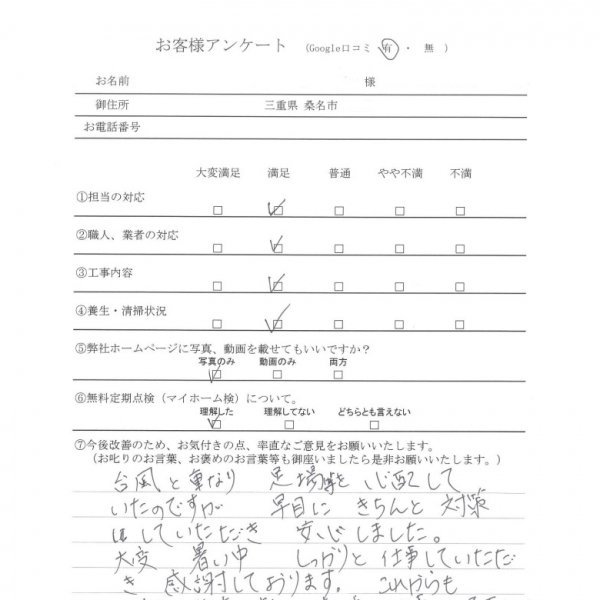 お客様アンケート （Google口コミ 有 ・ 無 ）
お名前 様
御住所 三重県 桑名市
お電話番号
大変満足 満足 普通 やや不満 不満
①担当の対応
②職人、業者の対応
③工事内容
④養生・清掃状況
⑤弊社ホームページに写真、動画を載せてもいいですか？
写真のみ 動画のみ 両方
⑥無料定期点検（マイホーム検）について。
理解した 理解してない どちらとも言えない
⑦今後改善のため、お気付きの点、率直なご意見をお願いいたします。
（お叱りのお言葉、お褒めのお言葉等も御座いましたら是非お願いいたします。）
台風と重なり 足場等を心配して
いたのですが 早目に きちんと 対策
していただき 安心しました。
大変 暑い中 しっかりと仕事していただ
き 感謝しております。 これからも